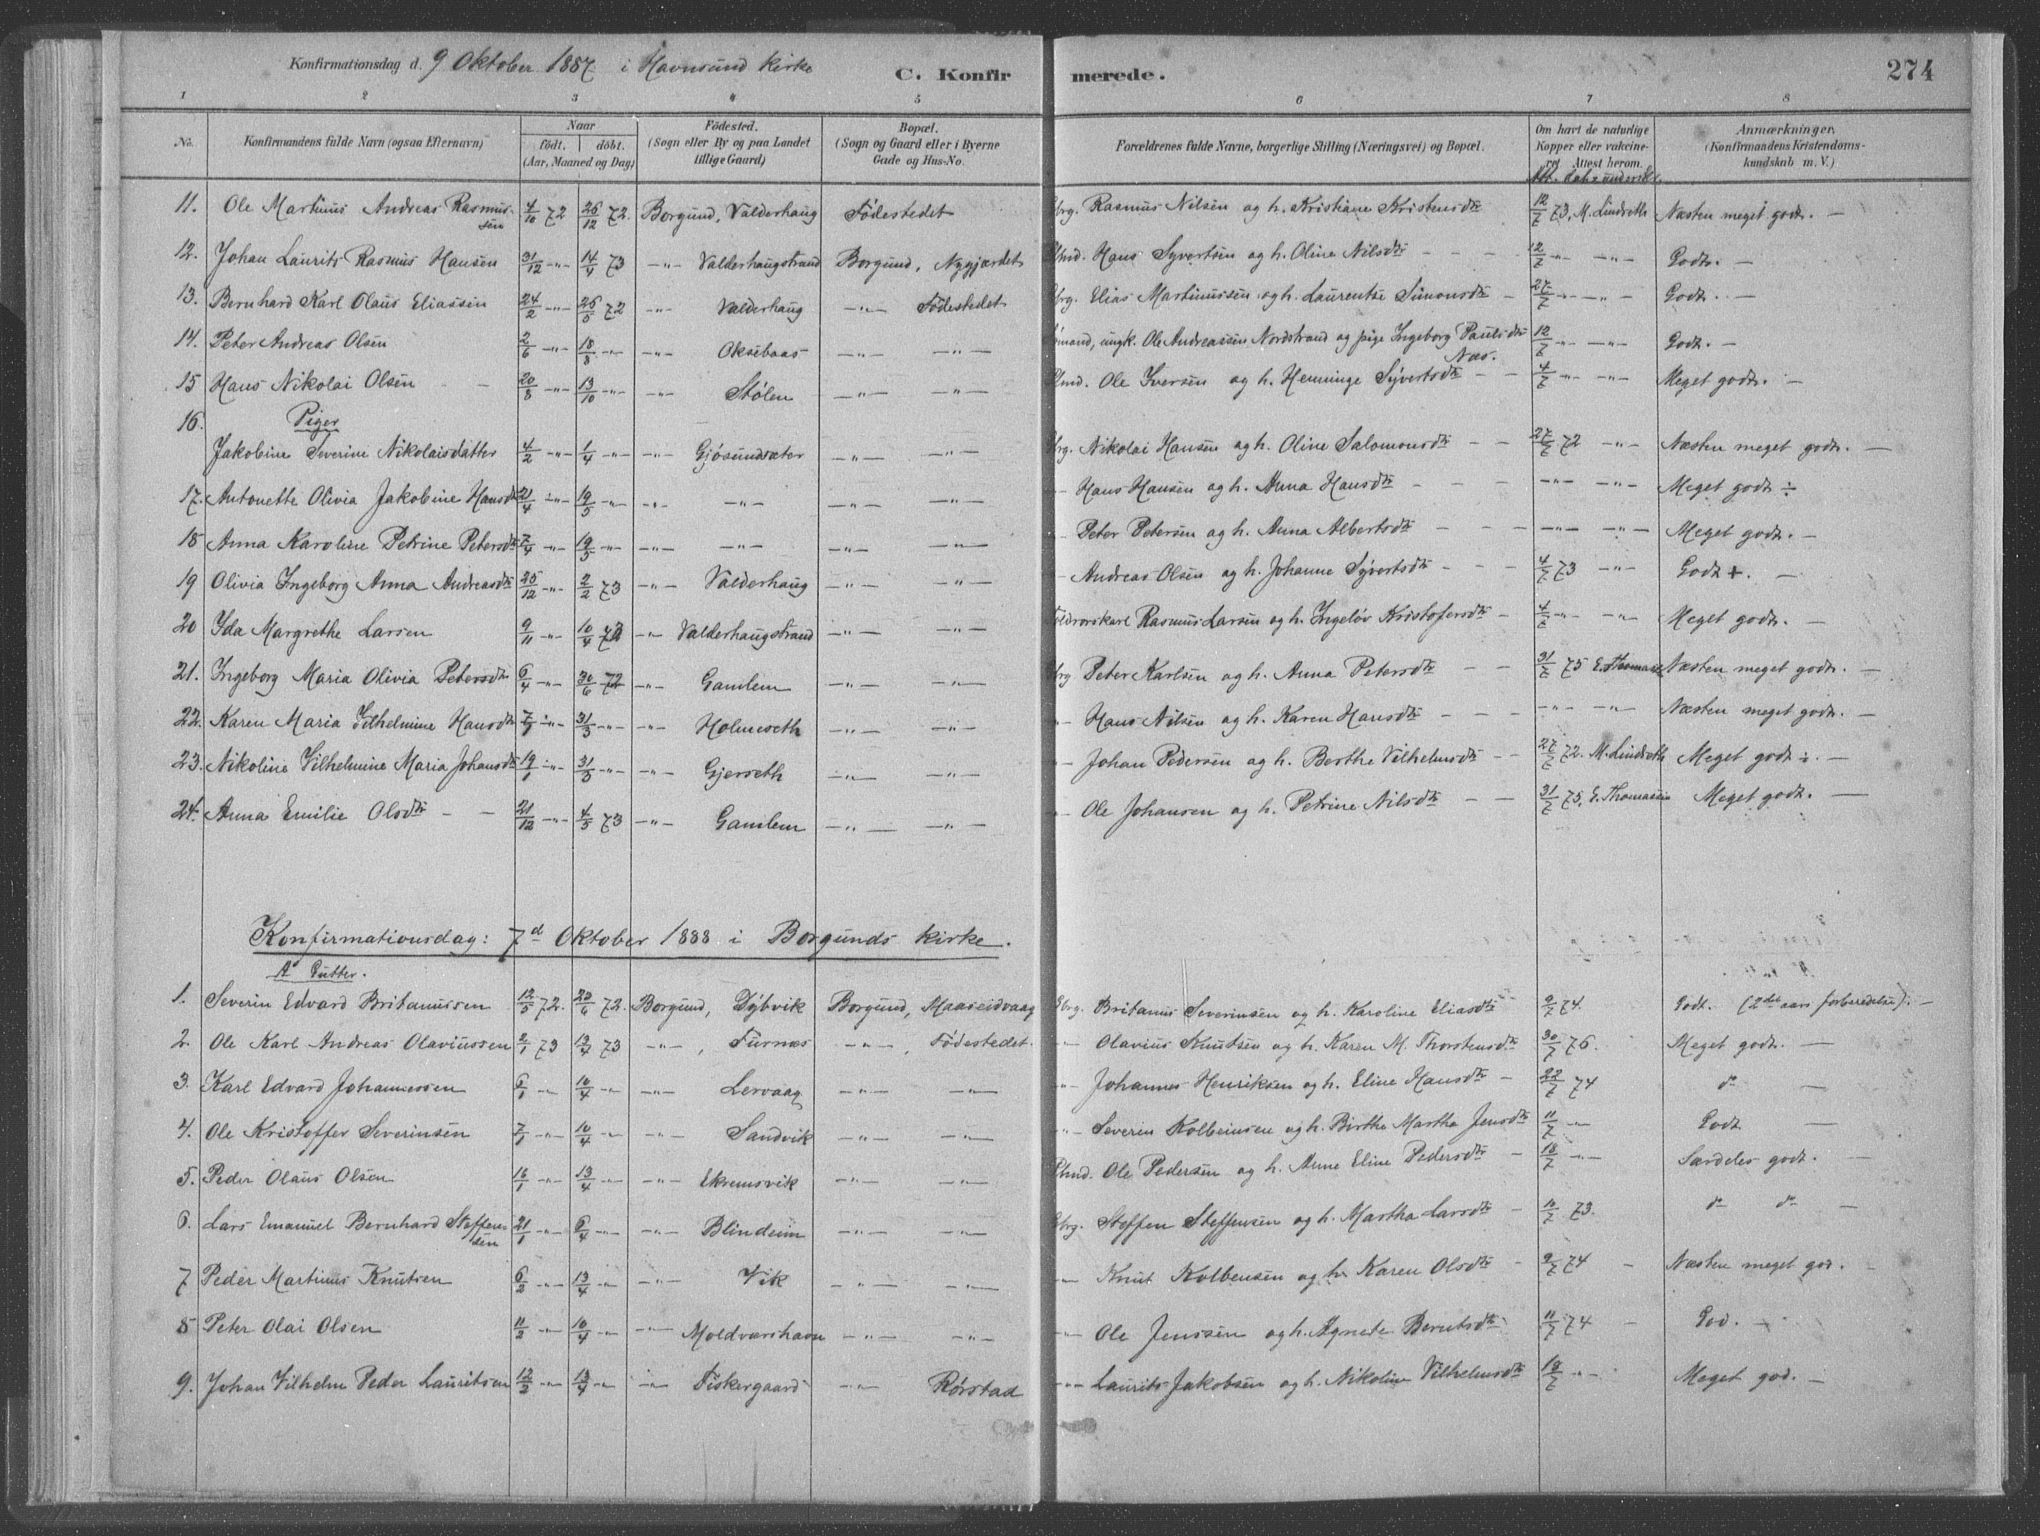 Konfirmationsdag d. 9 Oktober 1887 i Havnsund Kirke C. Konfirmerede. 274
1 2 3 4 5 6 7 8
No. Konfirmandens fulde Navn (ogsaa Efternavn) Naar födt. döbt. (Aar, Maaned og Dag) Födested. (Sogn eller By og paa Landet tillige Gaard) Bopæl. (Sogn og Gaard eller i Byerne Gade og Hus-No. Forældrenes fulde Navne, borgerlige Stilling (Næringsvei) og Bopæl. Om havt de naturlige Kopper eller vaccineret. Attest herom. Anmærkninger. (Konfirmandens Kristendomskundskab m. V.)
11. Ole Martinus Andreas Rasmussen 4/10 72 26/12 72. Borgund, Valderhaug Födestedet Rasmus Nilsen og h. Kristiane Kristensdtr 12/7 73, M. Lindreth Næsten meget godt. —
12. Johan Laurits Rasmus Hansen 31/12 -"- 14/4 73 -"- Valderhaugstrand Borgund, Nygjærdet Hans Syvertsen og h. Oline Nilsdtr 12/7 -"- -"- Godt. —
13. Bernhard Karl Olaus Eliassen 24/2 -"- 26/5 72 -"- Valderhaug -"- Födestedet Elias Martinussen og h. Laurentse Simonsdtr 27/7 -"- -"- Godt. —
14. Peter Andreas Olsen 2/6 -"- 18/8 -"- -"- Oksebaas -"- -"- ungk. Ole Andreassen Nordstrand og pige Ingeborg Paulsdtr Næs. 12/7 -"- -"- Godt. —
15 Hans Nikolai Olsen 20/8 -"- 13/10 -"- -"- Stølen -"- -"- Ole Iversen og h. Henninge Syvertsdtr 4/7 -"- -"- Meget godt. —
16. Piger
Jakobine Severine Nikolaisdatter 4/2 -"- 1/4 -"- -"- Gjøsundsæter -"- -"- Nikolai Hansen og h. Oline Salomonsdtr 27/7 72 -"- Næsten meget godt. —
17. Antonette Olivia Jakobine Hansdtr 21/4 -"- 19/5 -"- -"- -"- -"- -"- Hans Hansen og h. Anna Hansdtr -"- -"- Meget godt ÷
18 Anna Karoline Petrine Petersdtr 7/4 -"- 19/5 -"- -"- -"- -"- -"- Peter Petersen og h. Anna Albertsdtr -"- -"- Meget godt. —
19 Olivia Ingeborg Anna Andreasdtr 25/12 -"- 2/2 73 -"- Valderhaug -"- -"- Andreas Olsen og h. Johanne Syvertsdtr 4/7 73 -"- Godt +. —
20 Ida Margrethe Larsen 9/11 -"- 10/4 -"- Valderhaugstrand -"- -"- Rasmus Larsen og h. Ingeløv Kristofersdtr 4/7 -"- -"- Meget godt. —
21. Ingeborg Maria Olivia Petersdtr 6/4 -"- 30/6 72 -"- Gamlem -"- -"- Peter Karlsen og h. Anna Petersdtr 31/7 75 E. Thomasen Næsten meget godt. —
22. Karen Maria Vilhelmine Hansdtr 7/1 -"- 31/3 -"- -"- Holmeseth -"- -"- Hans Nilsen og h. Karen Hansdtr -"- -"- Næsten meget godt. —
23. Nikoline Vilhelmine Maria Johansdtr 19/1 -"- 31/3 -"- -"- Gjerseth -"- -"- Johan Pedersen og h. Berthe Vilhelmsdtr 27/7 72. M. Lindreth Meget godt ÷. —
24. Anna Emilie Olsdtr 21/12 -"- 4/5 73 -"- Gamlem -"- -"- Ole Johansen og h. Petrine Nilsdtr 31/7 75, E. Thomassen Meget godt. —
Konfirmationsdag: 7d Oktober 1888 i Borgunds Kirke.
A. Gutter.
1. Severin Edvard Britanussen 12/5 72. 23/6 72. Borgund, Dybvik Borgund, Maaseidvaag Britanus Severinsen og h. Karoline Eliasdtr 9/7 74. Godt. (2det aars forberedelse). —
2. Ole Karl Andreas Olaviussen 2/1 73 13/4 73 -"-, Furnæs -"-, Födestedet. Olavius Knutsen og h. Karen M. Thorstensdtr 30/7 76. Meget godt. —
3. Karl Edvard Johannessen 6/1 -"- 10/4 -"- -"- Lervaag -"- -"- Johannes Henriksen og h. Eline Hansdtr 22/7 74 do —
4. Ole Kristoffer Severinsen 7/1 -"- 10/4 -"- -"- Sandvik -"- -"- Severin Kolbeinsen og h. Birthe Martha Jensdtr 11/7 -"- Godt —
5. Peder Olaus Olsen 16/1 -"- 13/4 -"- -"- Ekremsvik -"- -"- Ole Pedersen og h. Anne Eline Pedersdtr 18/7 -"- Særdeles godt. —
6. Lars Emanuel Bernhard Steffensen 21/1 -"- 6/4 -"- -"- Blindeim -"- -"- Steffen Steffensen og h. Martha Larsdtr 10/7 73. do do —
7 Peder Martinus Knutsen 6/2 -"- 13/4 -"- -"- Vik -"- -"- Knut Kolbensen og h. Karen Olsdtr 9/7 74 Næsten meget god. —
8 Peter Olai Olsen 11/2 -"- 10/4 -"- -"- Moldværshavn -"- -"- Ole Jenssen og h. Agnete Berntsdtr 11/7 74 God. —
9. Johan Vilhelm Peder Lauritsen 12/2 -"- 13/4 -"- -"- Fiskergaard -"- Rørstad Laurits Jakobsen og h. Nikoline Vilhelmsdtr 18/7 -"- Meget god. —